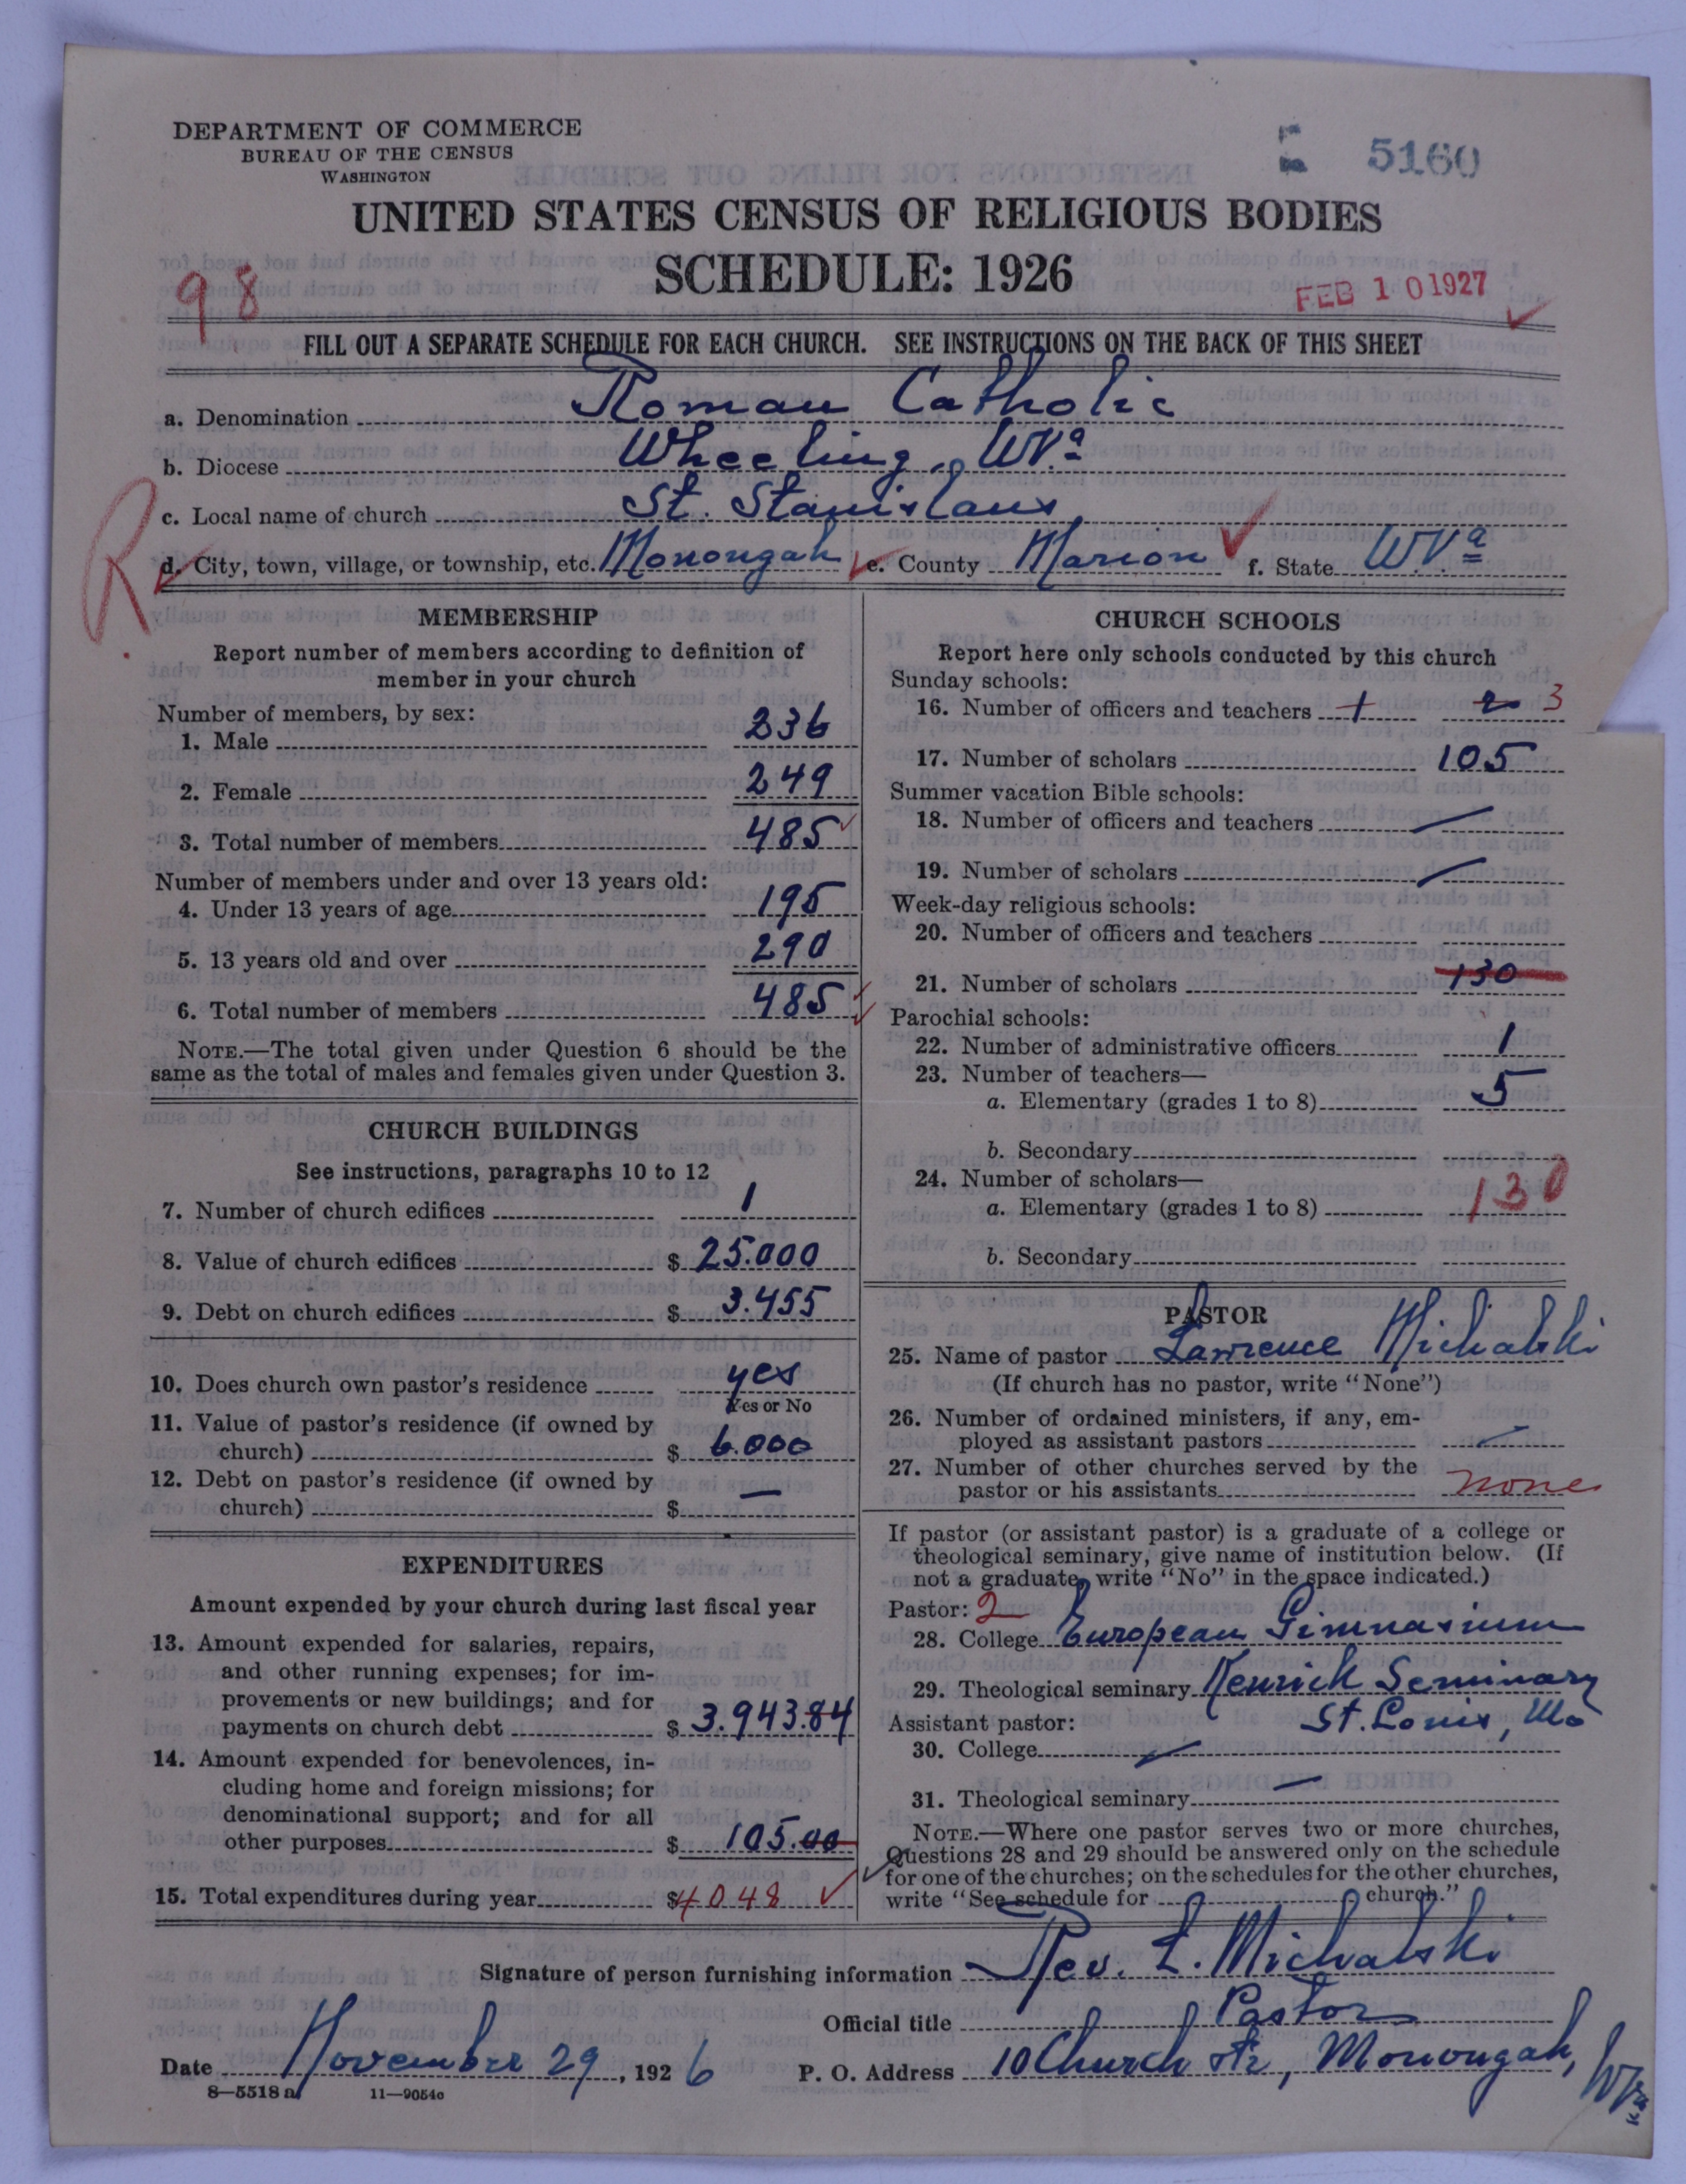 DEPARTMENT OF COMMERCE
BUREAU OF THE CENSUS
WASHINGTON
5160
UNITED STATES CENSUS OF RELIGIOUS BODIES
SCHEDULE: 1926
98
FEB 10 1927
FILL OUT A SEPARATE SCHEDULE FOR EACH CHURCH. SEE INSTRUCTIONS ON THE BACK OF THIS SHEET
a. Denomination Roman Catholic
b. Diocese Wheeling, W.Va
c. Local name of church St. Stanislaus
R
d. City, town, village, or township, etc. Monongah e. County Marion f. State W.Va
MEMBERSHIP
Report number of members according to definition of
member in your church
Number of members, by sex:
1. Male 236
2. Female 249
3. Total number of members 485
Number of members under and over 13 years old:
4. Under 13 years of age 195
5. 13 years old and over 290
6. Total number of members 485
NOTE.—The total given under Question 6 should be the
same as the total of males and females given under Question 3.
CHURCH BUILDINGS
See instructions, paragraphs 10 to 12
7. Number of church edifices 1
8. Value of church edifices $ 25.000
9. Debt on church edifices $ 3.455
10. Does church own pastor's residence yes
Yes or No
11. Value of pastor's residence (if owned by
church) $ 6.000
12. Debt on pastor's residence (if owned by
church) $ —
EXPENDITURES
Amount expended by your church during last fiscal year
13. Amount expended for salaries, repairs,
and other running expenses; for im-
provements or new buildings; and for
payments on church debt $ 3.943.84
14. Amount expended for benevolences, in-
cluding home and foreign missions; for
denominational support; and for all
other purposes $ 105.00
15. Total expenditures during year $ 4048
CHURCH SCHOOLS
Report here only schools conducted by this church
Sunday schools:
16. Number of officers and teachers 1 2 3
17. Number of scholars 105
Summer vacation Bible schools:
18. Number of officers and teachers —
19. Number of scholars —
Week-day religious schools:
20. Number of officers and teachers
21. Number of scholars 130
Parochial schools:
22. Number of administrative officers 1
23. Number of teachers—
a. Elementary (grades 1 to 8) 5
b. Secondary
24. Number of scholars—
a. Elementary (grades 1 to 8) 130
b. Secondary
PASTOR
25. Name of pastor Lawrence Michalski
(If church has no pastor, write "None")
26. Number of ordained ministers, if any, em-
ployed as assistant pastors —
27. Number of other churches served by the
pastor or his assistants none
If pastor (or assistant pastor) is a graduate of a college or
theological seminary, give name of institution below. (If
not a graduate, write "No" in the space indicated.)
Pastor: 2
28. College European Gimnasium
29. Theological seminary Kenrick Seminary
Assistant pastor: St. Louis, Mo
30. College —
31. Theological seminary —
NOTE.—Where one pastor serves two or more churches,
Questions 28 and 29 should be answered only on the schedule
for one of the churches; on the schedules for the other churches,
write "See schedule for church."
Signature of person furnishing information Rev. L. Michalski
Official title Pastor
Date November 29, 1926 P. O. Address 10 Church Str, Monongah, W.Va
8—5518 a 11—9054o